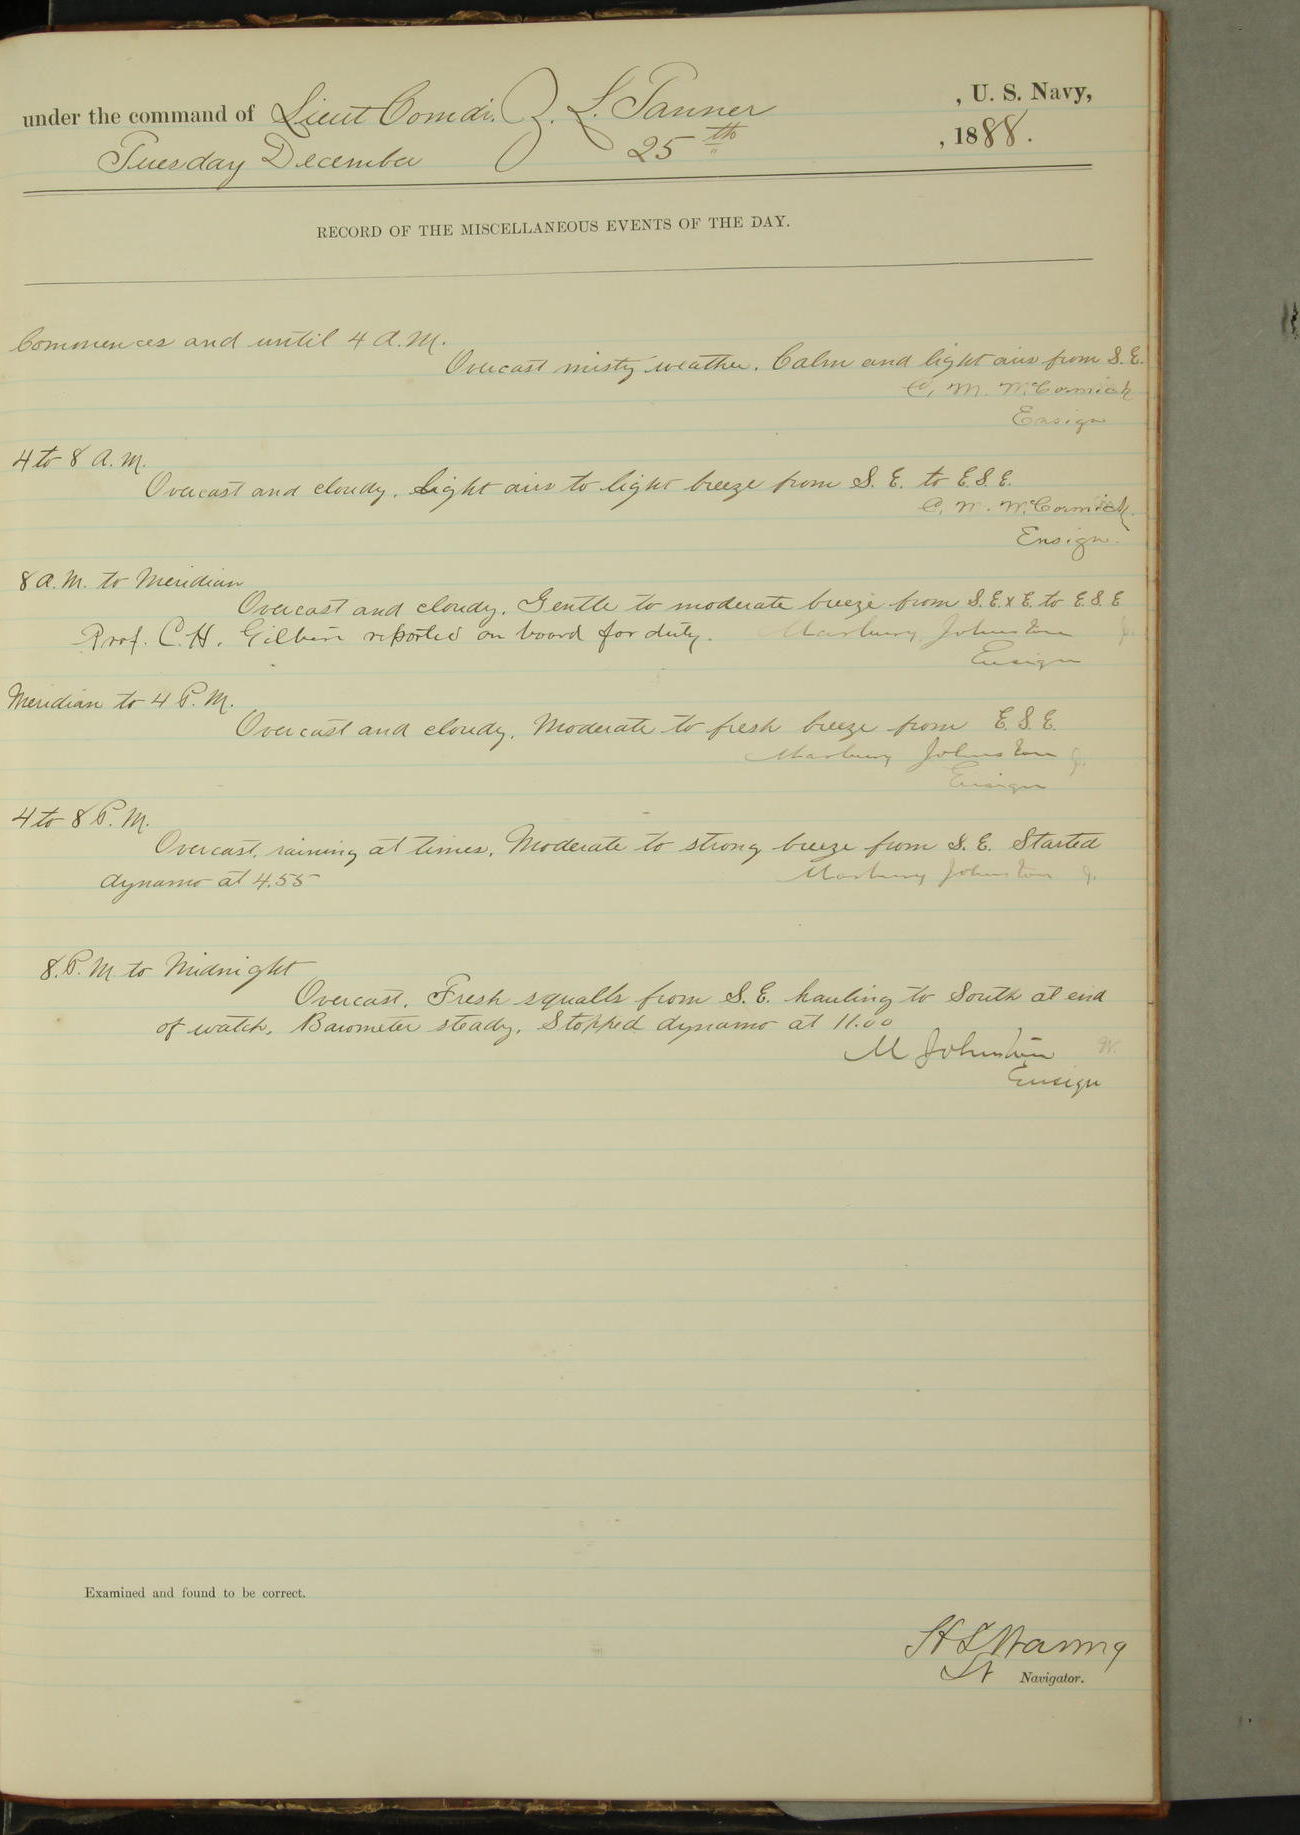 under the command of Lieut Comdr. Z. L. Tanner , U. S. Navy,
Tuesday December 25th , 1888.
RECORD OF THE MISCELLANEOUS EVENTS OF THE DAY.
Commences and until 4 A.M.
Overcast misty weather. Calm and light airs from S.E.
C. M. McCormick
Ensign
4 to 8 A.M.
Overcast and cloudy. Light airs to light breeze from S. E. to E.S.E.
C. M. McCormick
Ensign.
8 A.M. to Meridian
Overcast and cloudy. Gentle to moderate breeze from S.E.x E. to E.S.E
Prof. C. H. Gilbert reported on board for duty. Marbury Johnston
Ensign
Meridian to 4 P.M.
Overcast and cloudy. Moderate to fresh breeze from E.S.E.
Marbury Johnston
Ensign
4 to 8 P.M.
Overcast, raining at times. Moderate to strong breeze from S.E. Started
dynamo at 4.55 Marbury Johnston
8. P.M. to Midnight
Overcast. Fresh squalls from S.E. hauling to South at end
of watch. Barometer steady. Stopped dynamo at 11.00
M Johnston
Ensign
Examined and found to be correct.
H S Waring
Lt Navigator.